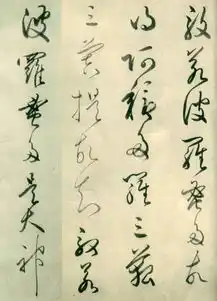 般若波羅蜜多故
得阿耨多羅三藐
三菩提故知般若
波羅蜜多是大神